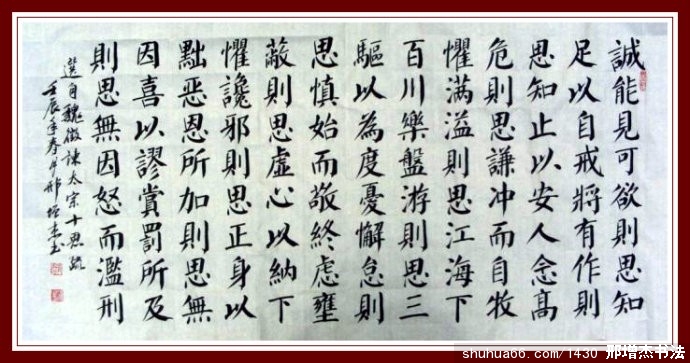 誠能見可欲則思知
足以自戒將有作則
思知止以安人念高
危則思謙冲而自牧
懼满溢則思江海下
百川樂盤游則思三
驅以為度憂懈怠則
思慎始而敬終慮壅
蔽則思虚心以納下
懼讒邪則思正身以
黜恶恩所加則思無
因喜以謬賞罰所及
則思無因怒而濫刑
選自魏徵諫太宗十思疏
壬辰年春月邢增杰书
shuhua66.com/1430 邢增杰书法